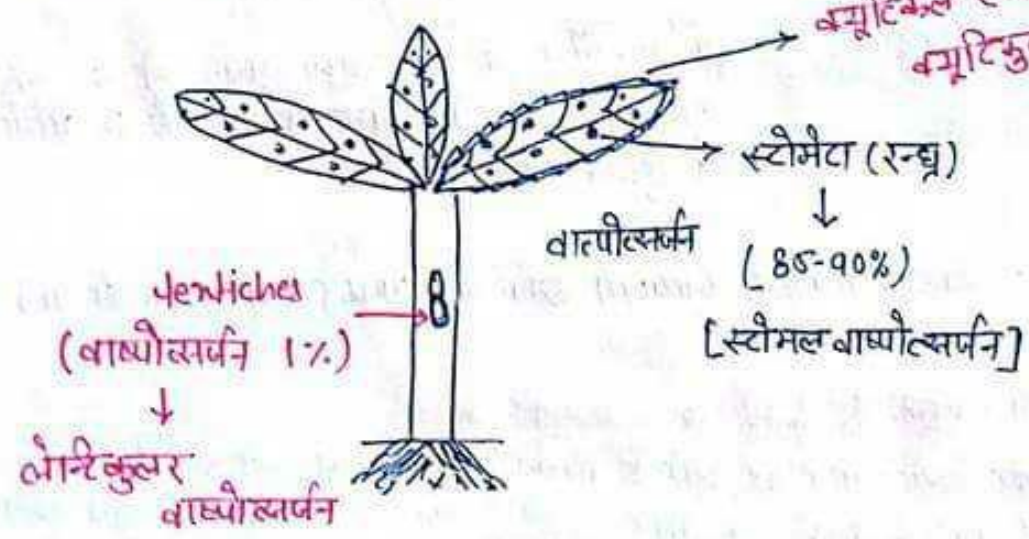 क्यूटिकल
क्यूटिकु
स्टोमेटा (रन्ध्र)
↓
वाष्पोत्सर्जन
(85-90%)
[स्टोमल वाष्पोत्सर्जन]
(वाष्पोत्सर्जन 1%)
↓
लेन्टिकुलर
वाष्पोत्सर्जन